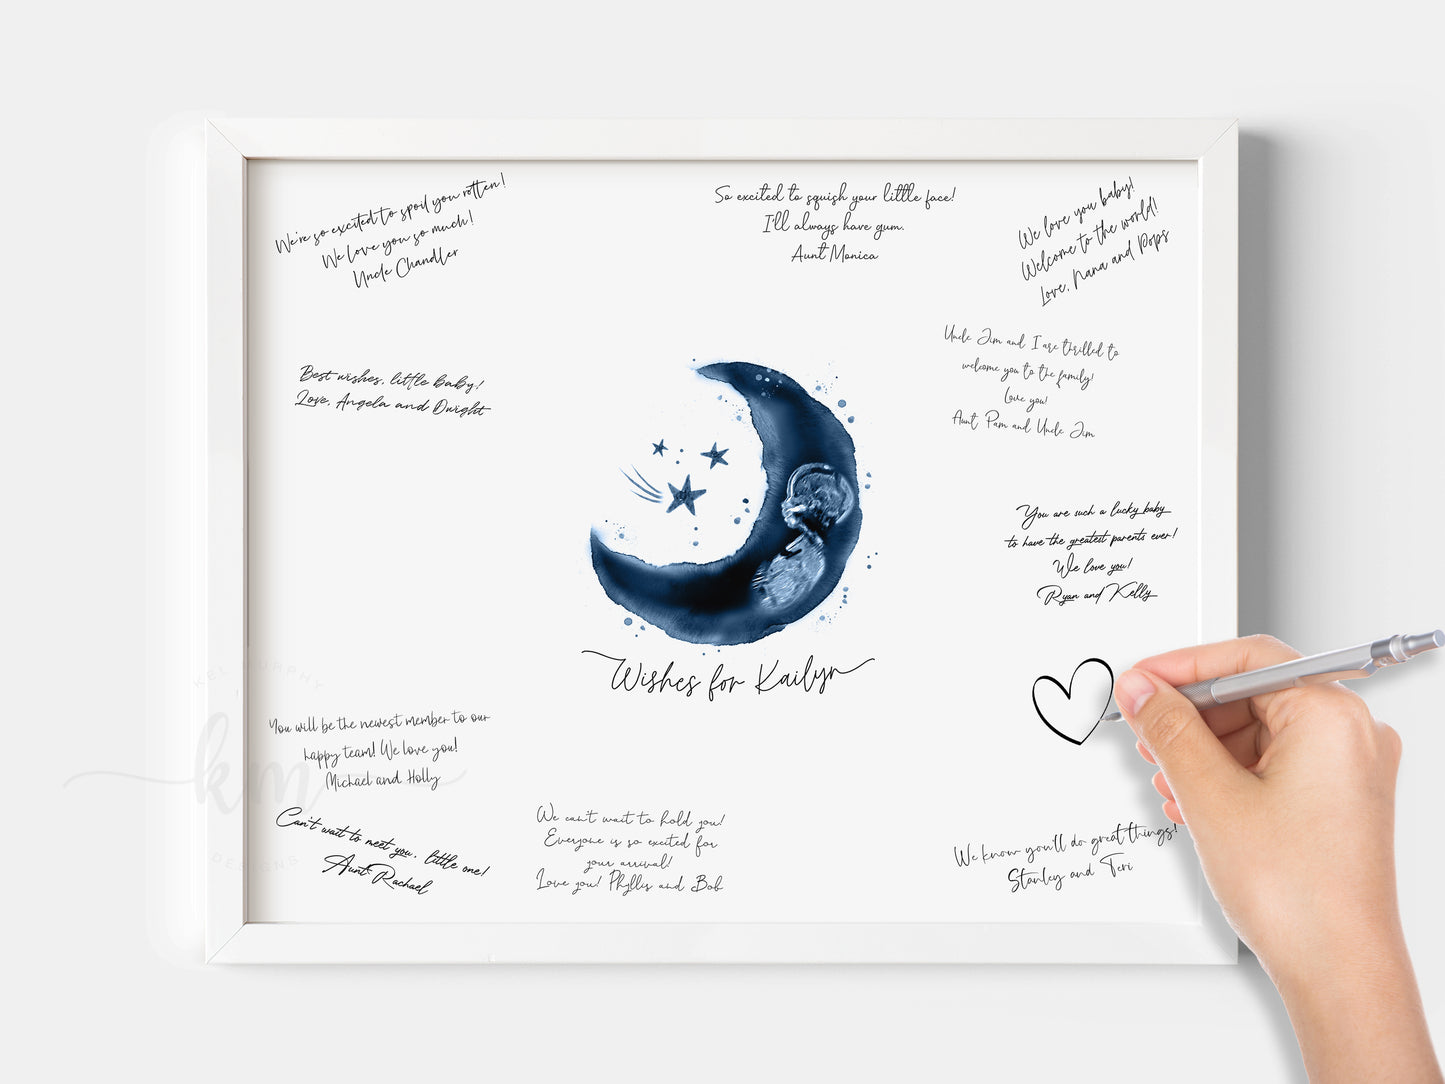 We're so excited to spoil you rotten!
We love you so much!
Uncle Chandler
So excited to squish your little face!
I'll always have gum.
Aunt Monica
We love you baby!
Welcome to the world!
Love, Nana and Pops
Uncle Jim and I are thrilled to
welcome you to the family!
Love you!
Aunt Pam and Uncle Jim
Best wishes, little baby!
Love, Angela and Dwight
You are such a lucky baby
to have the greatest parents ever!
We love you!
Ryan and Kelly
Wishes for Kailyn
KEL MURPHY
km
DESIGNS
You will be the newest member to our
happy team! We love you!
Michael and Holly
Can't wait to meet you, little one!
Aunt Rachael
We can't wait to hold you!
Everyone is so excited for
your arrival!
Love you! Phyllis and Bob
We know you'll do great things!
Stanley and Teri